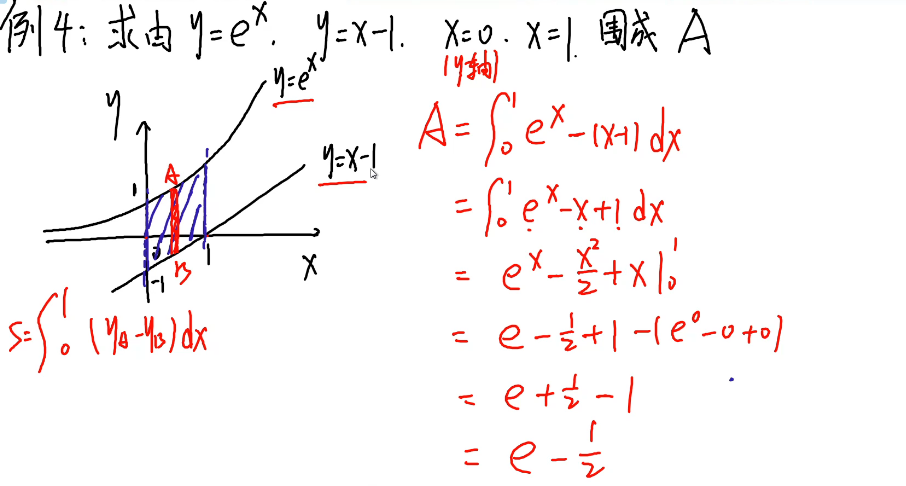 例4：求由 y=e^x. y=x-1. x=0. x=1. 围成 A
(y轴)
y=e^x
y
A
1
1
y=x-1
0
1
-1
B
x
S=∫₀¹ (y_A-y_B)dx
A=∫₀¹ e^x-(x-1)dx
=∫₀¹ e^x-x+1 dx
= e^x-x²/2+x|₀¹
= e-1/2+1-(e^0-0+0)
= e+1/2-1
= e-1/2